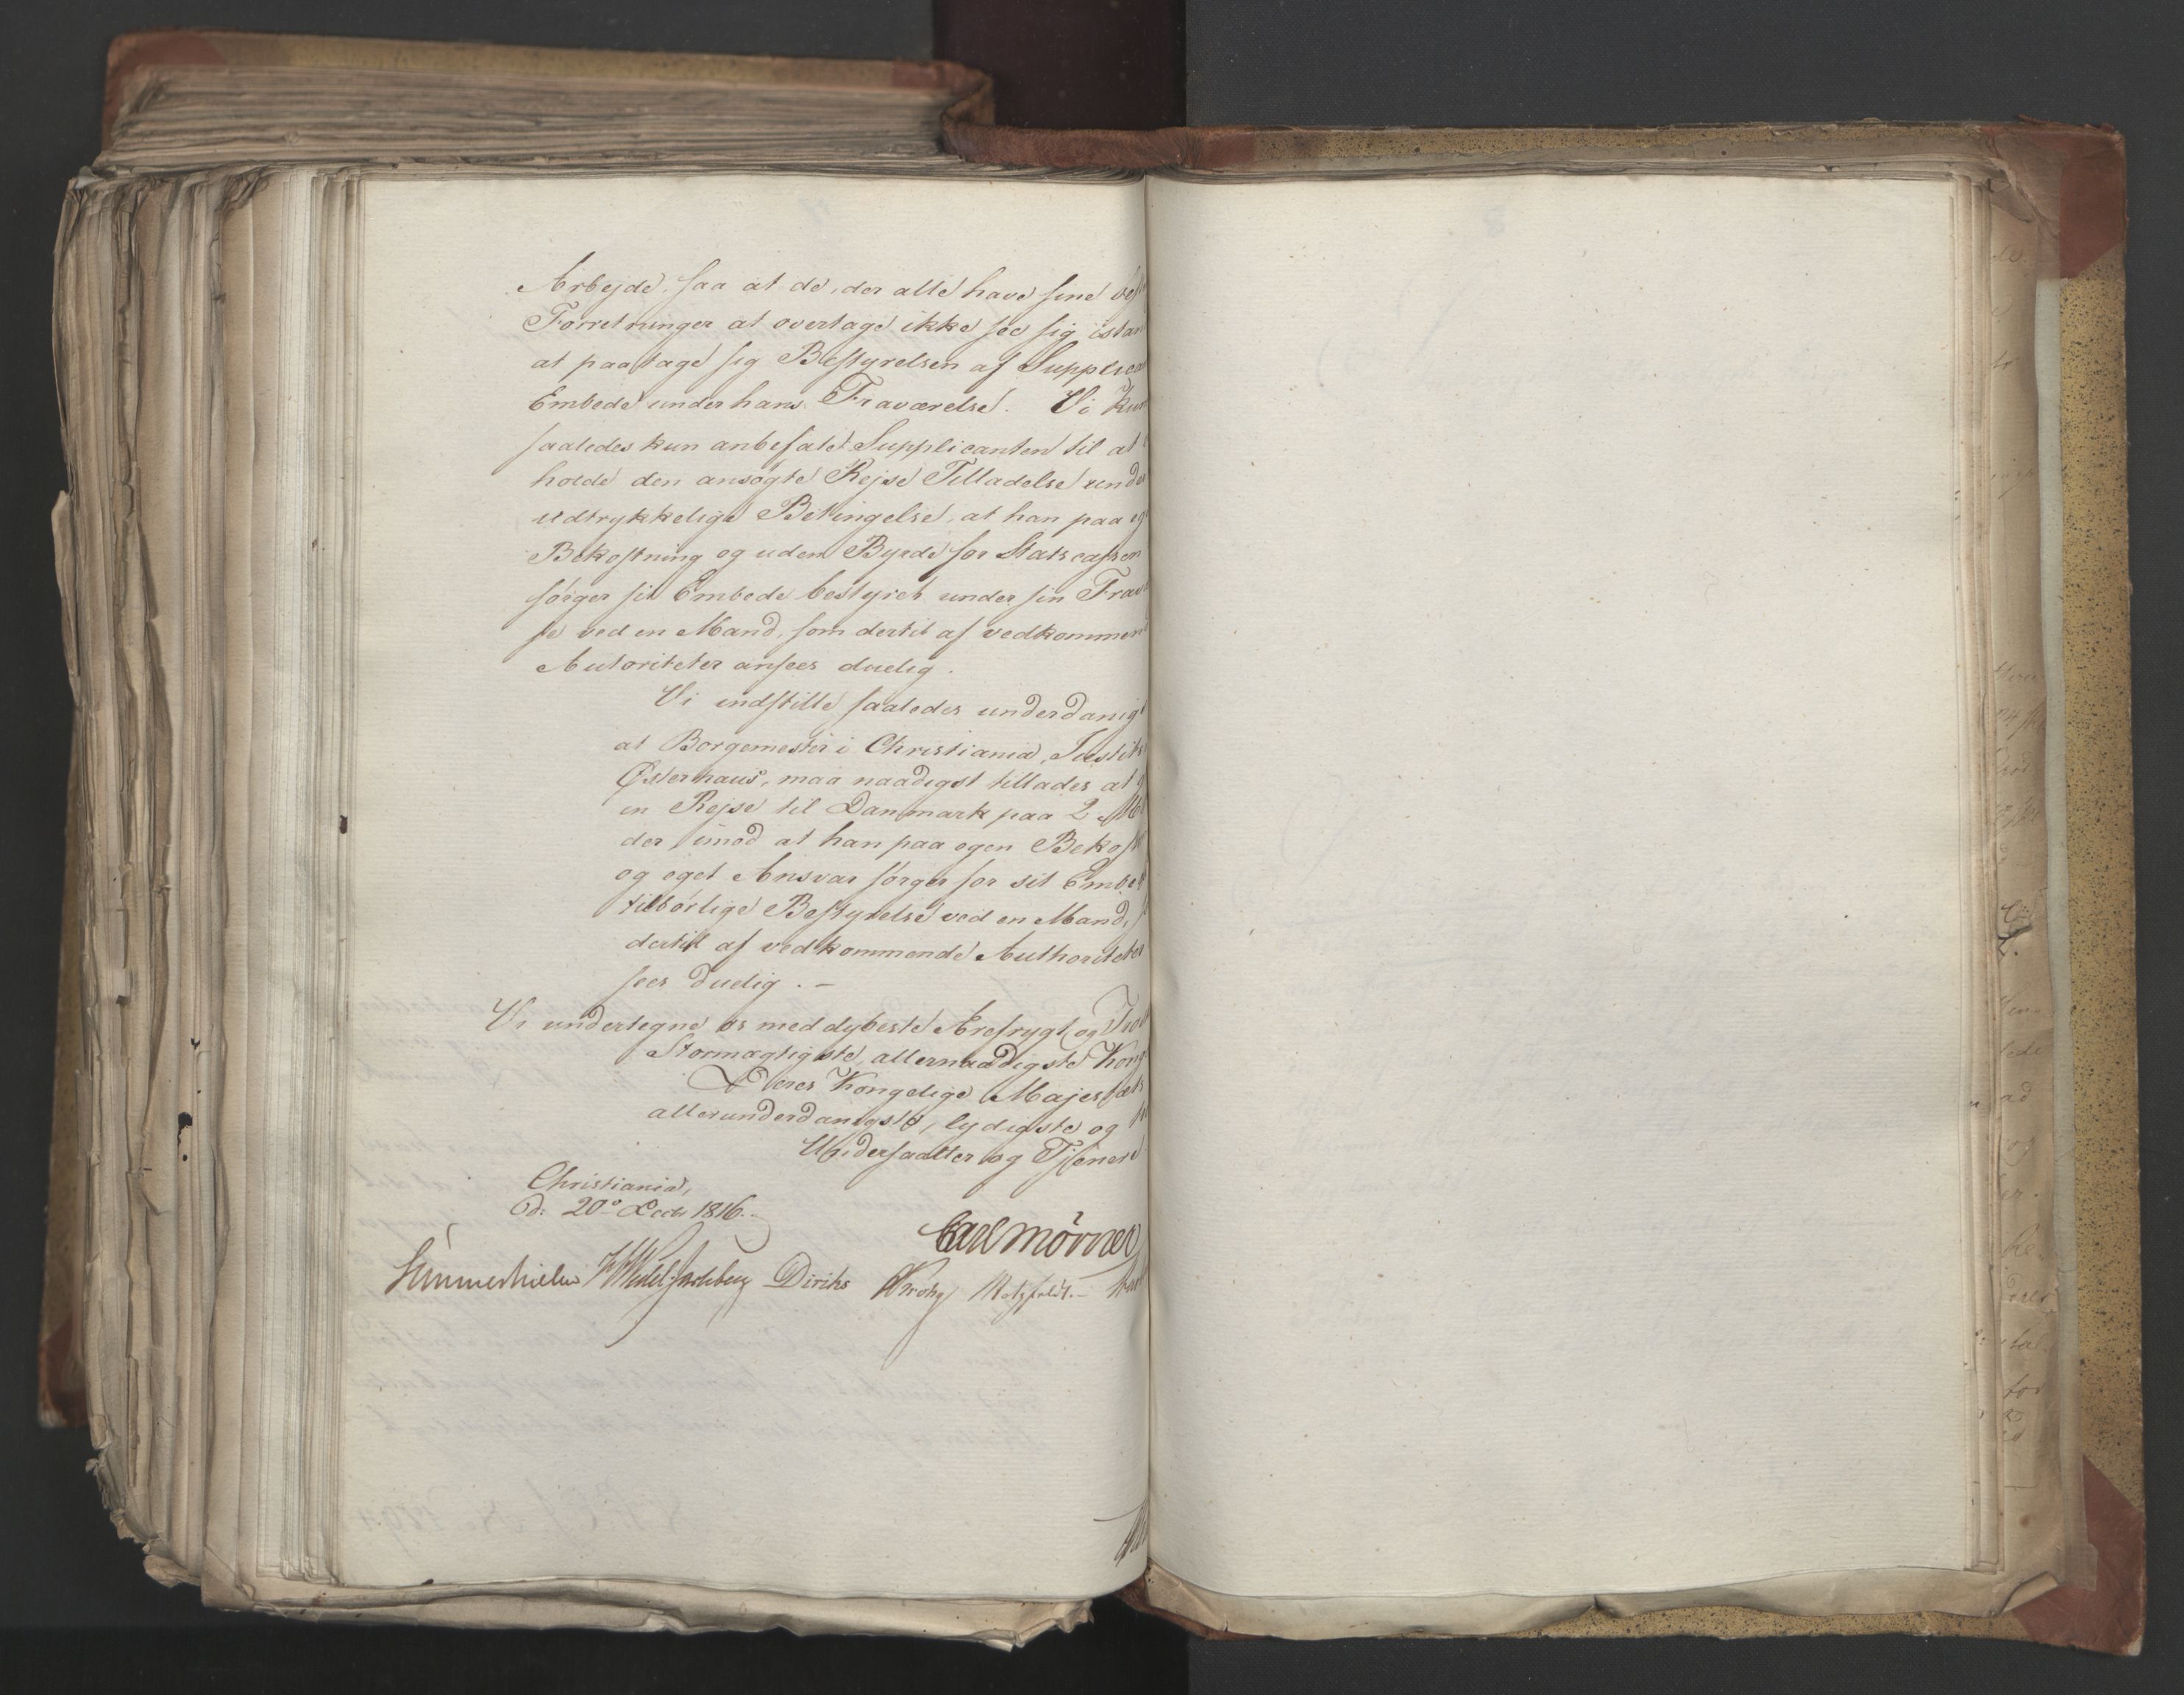 Arbejde, saa at de, der alle have sine
Forretninger at overtage ikke see sig istan
at paatage sig Bestyrelsen af Supplica
Embede under hans Fraværelse. Vi kun
saaledes kun anbefale Supplicanten til at
holde den ansøgte Rejse Tilladelse under
udtrykkelige Betingelse, at han paa eg
Bekostning og uden Byrde for Statscassen
sørger sit Embede bestyret under sin Fravæ
se ved en Mand, som dertil af vedkommend
Autoriteter ansees duelig.
Vi indstille saaledes underdanigst
at Borgemester i Christiania, Justits
Østerhaus, maa naadigst tillades at
en Rejse til Danmark paa 2 Maa
der imod at han paa egen Bekost
og eget Ansvar sørger for sit Embed
tilbørlige Bestyrelse ved en Mand,
dertil af vedkommende Authoriteter
sees duelig. -
Vi undertegne os med dybeste Ærefrygt og Tro
Stormægtigste, allernaadigste Kong
Deres Kongelige Majestæts
allerunderdanigste, lydigste og
Undersaatter og Tjenere
Christiania,
d: 20de Decbr 1816.
Carl Mörner
Sommerhielm HWedel Jarlsberg Diriks Krohg Motzfeldt.